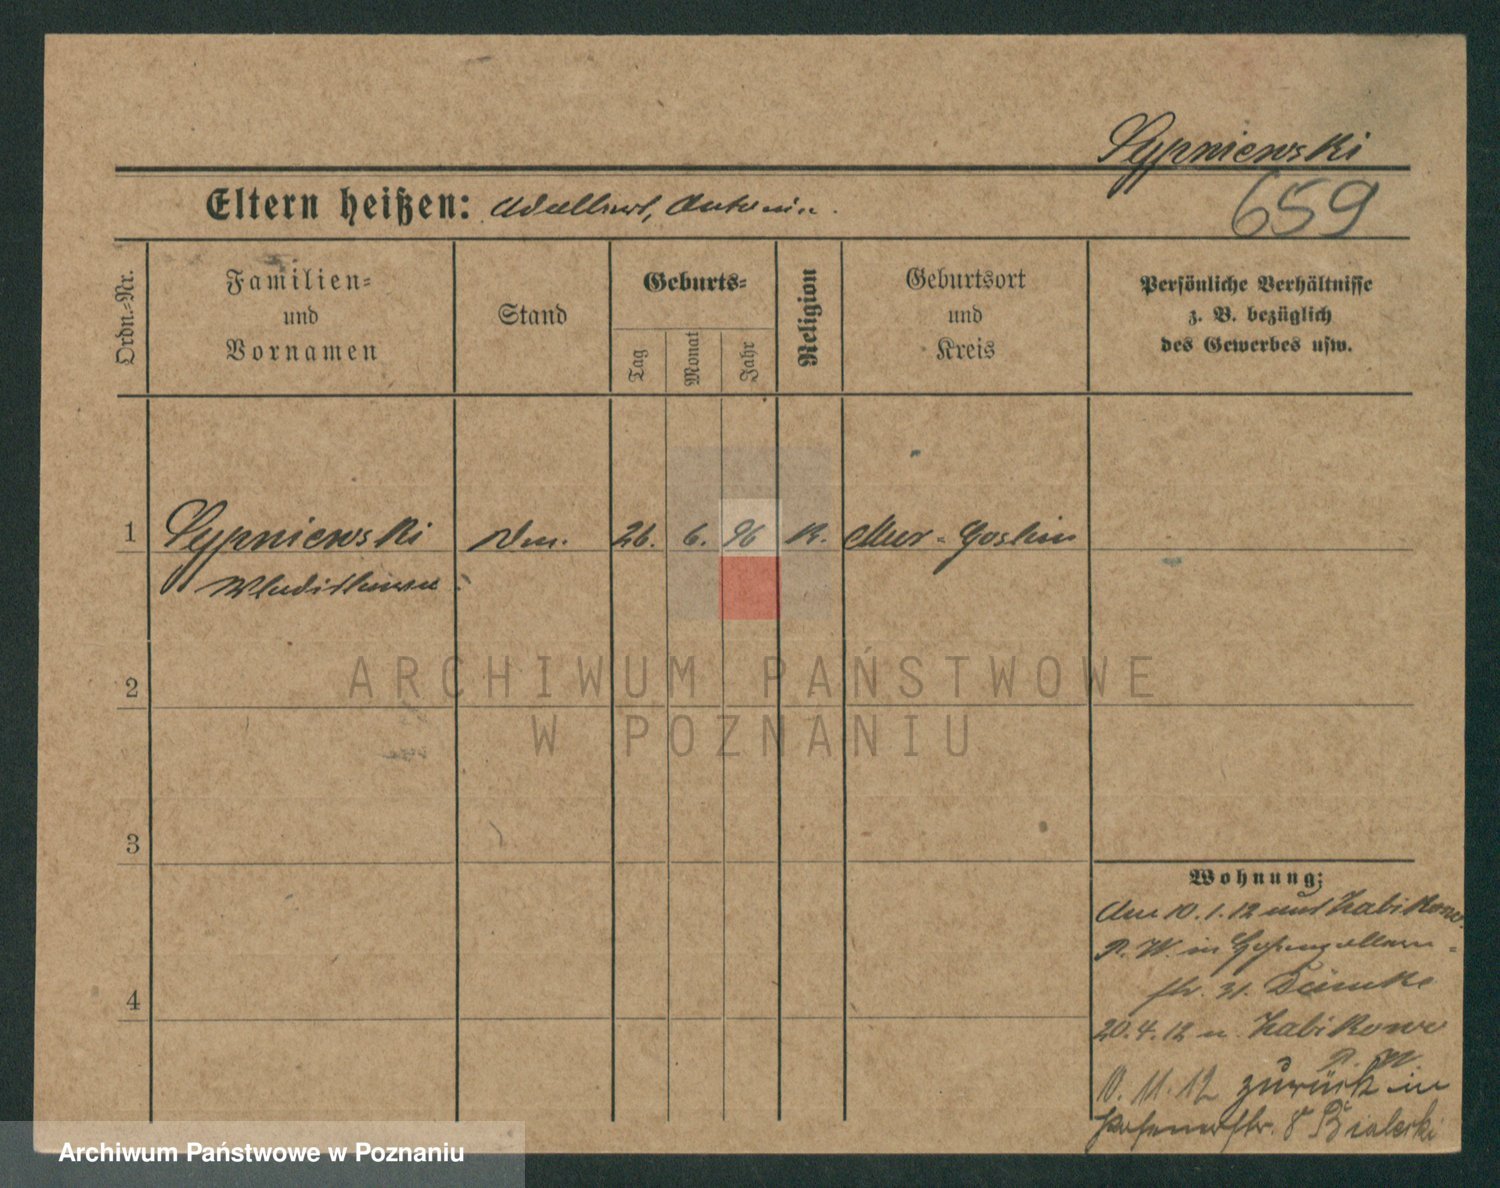 Sypniewski
659
Eltern heißen: Adalbert, Antonin.
Ordn.=Nr.
Familien=
und
Vornamen
Stand
Geburts=
Tag
Monat
Jahr
Religion
Geburtsort
und
Kreis
Persönliche Verhältnisse
z. B. bezüglich
des Gewerbes usw.
1 Sypniewski 26. 6. 96 K. Mur-Goslin
Wladislawa
2
ARCHIWUM PAŃSTWOWE
W POZNANIU
3
Wohnung:
Am 10.1.12 aus Zabikowo
P. W. in Hohenzollern-
str. 31.
20.4.12 n. Zabikowo
P. W.
4
10.11.12 zurück in
Posenerstr. 8 Bialecki
Archiwum Państwowe w Poznaniu